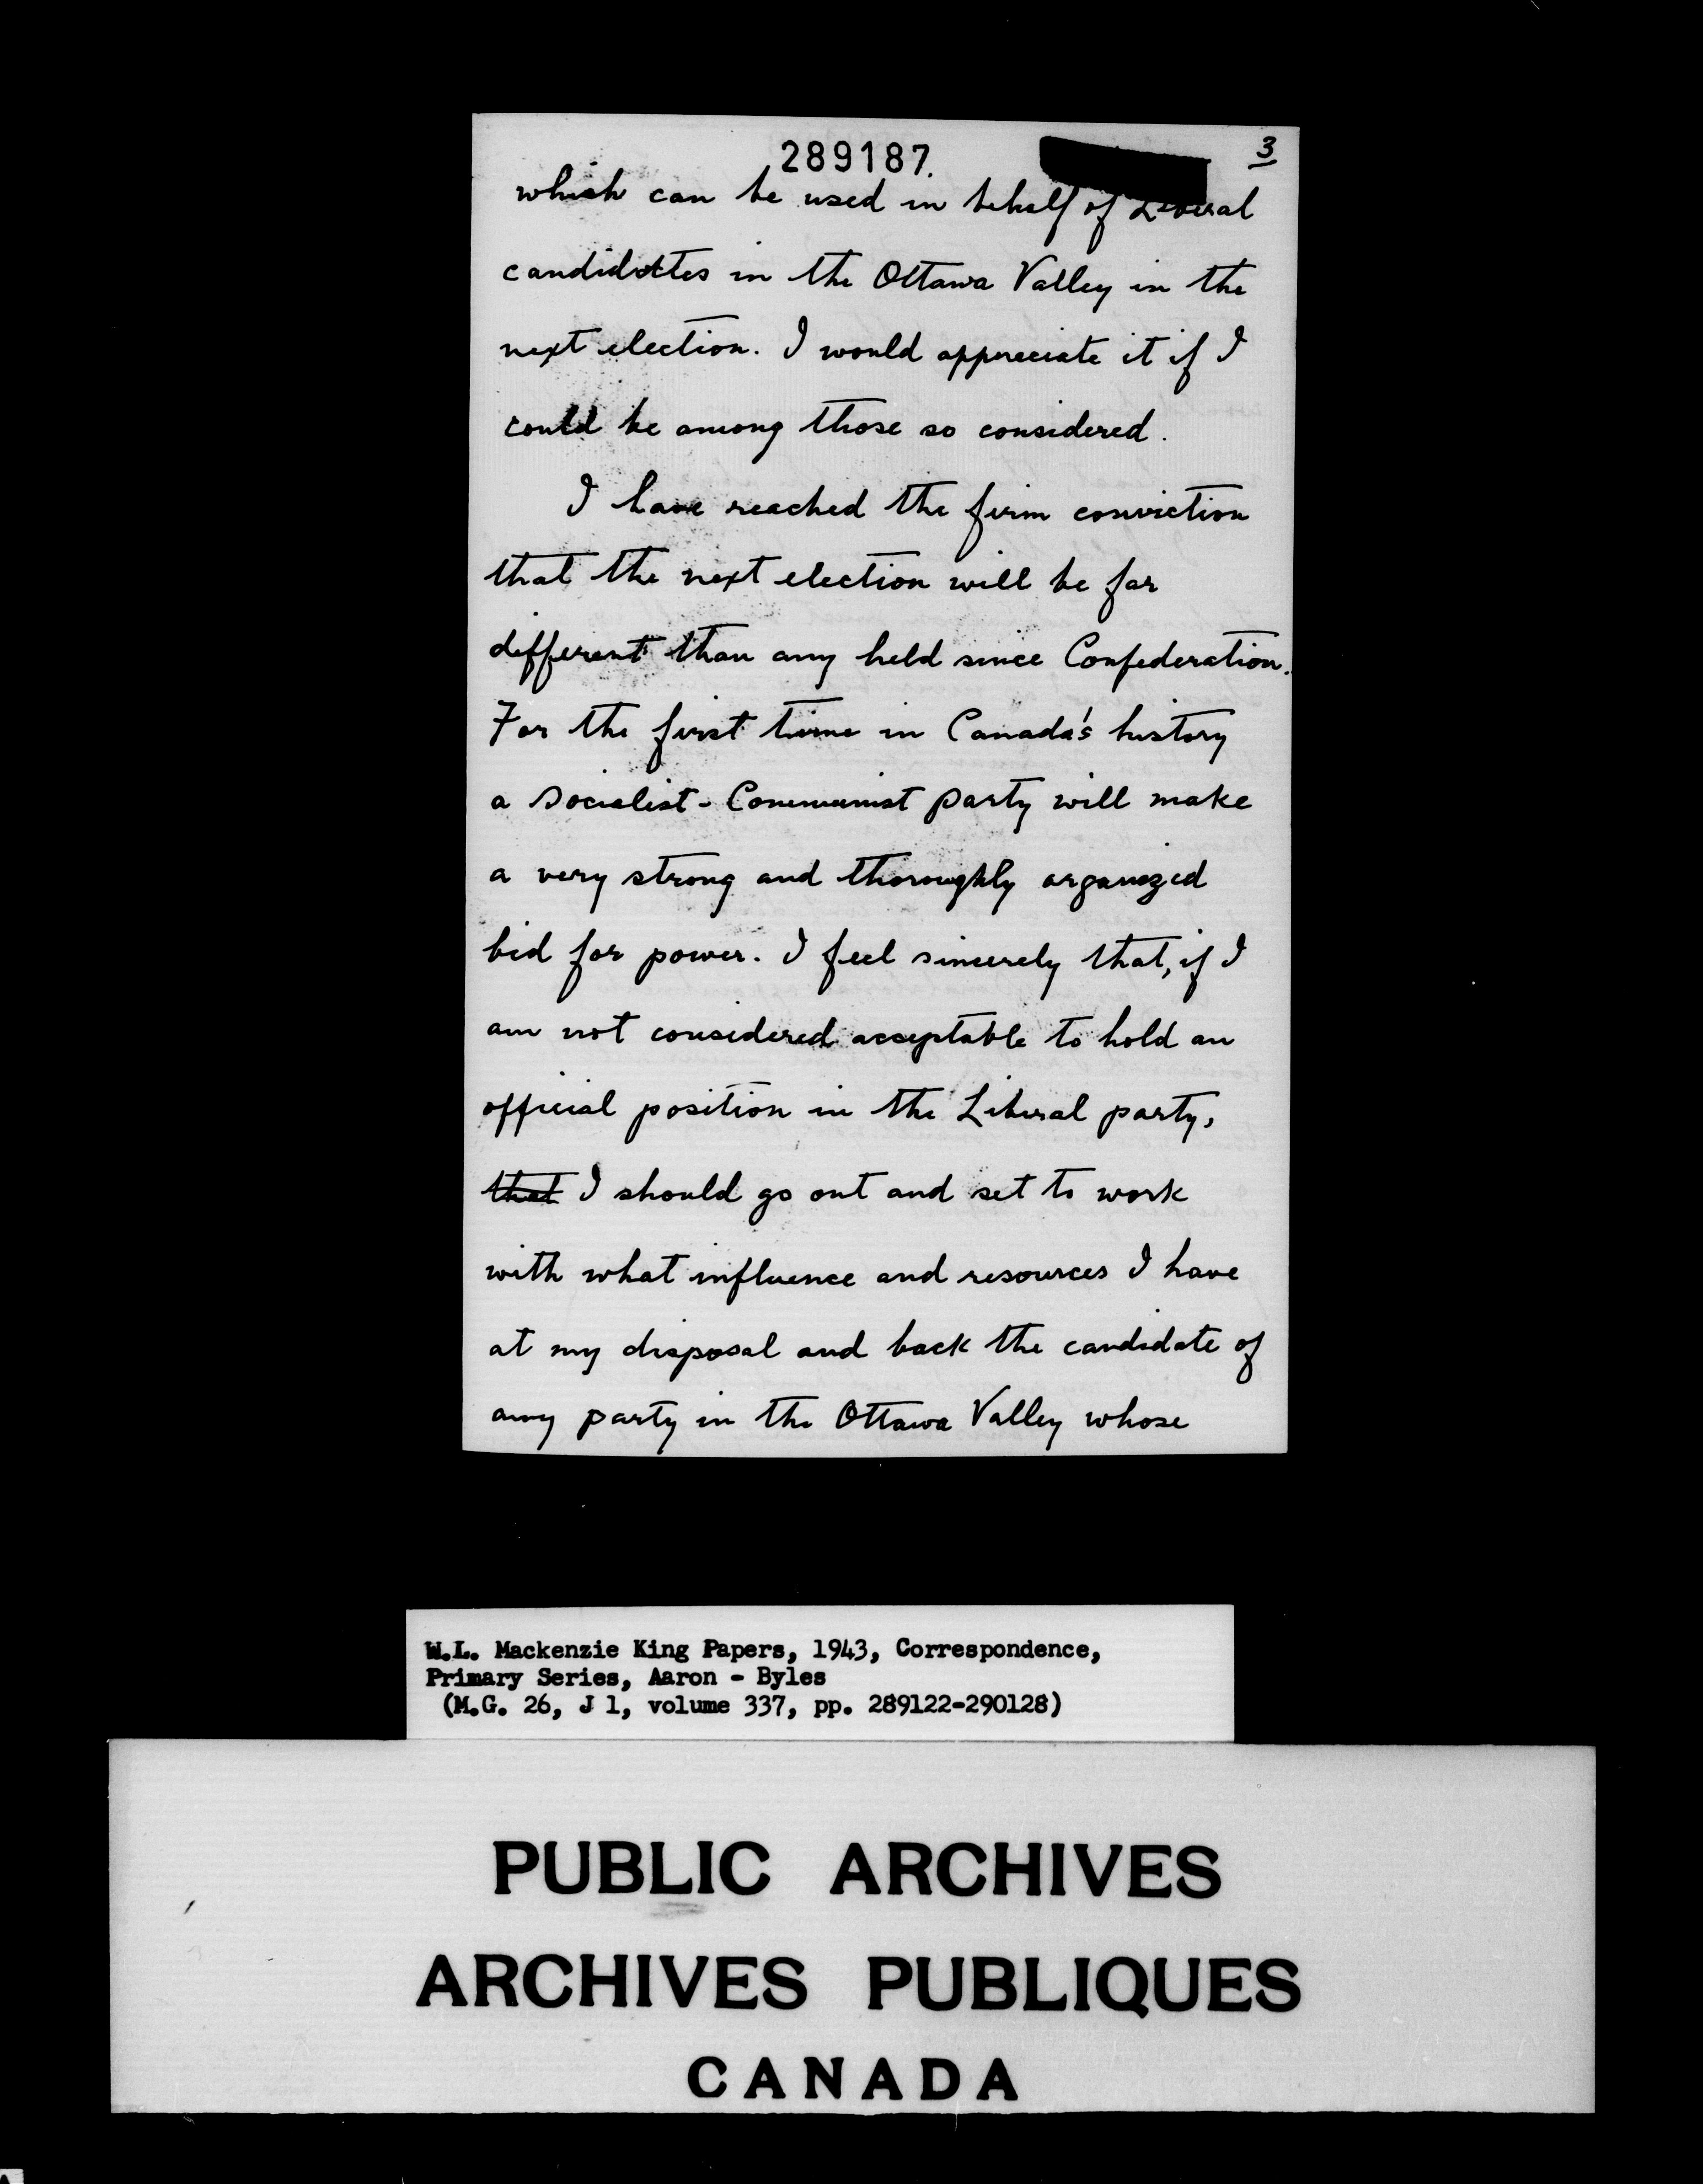 289187.
3
which can be used in behalf of Liberal
candidates in the Ottawa Valley in the
next election. I would appreciate it if I
could be among those so considered.
I have reached the firm conviction
that the next election will be far
different than any held since Confederation.
For the first time in Canada's history
a Socialist-Communist party will make
a very strong and thoroughly organized
bid for power. I feel sincerely that, if I
am not considered acceptable to hold an
official position in the Liberal party,
that I should go out and set to work
with what influence and resources I have
at my disposal and back the candidate of
any party in the Ottawa Valley whose
W.L. Mackenzie King Papers, 1943, Correspondence,
Primary Series, Aaron - Byles
(M.G. 26, J 1, volume 337, pp. 289122-290128)
PUBLIC ARCHIVES
ARCHIVES PUBLIQUES
CANADA